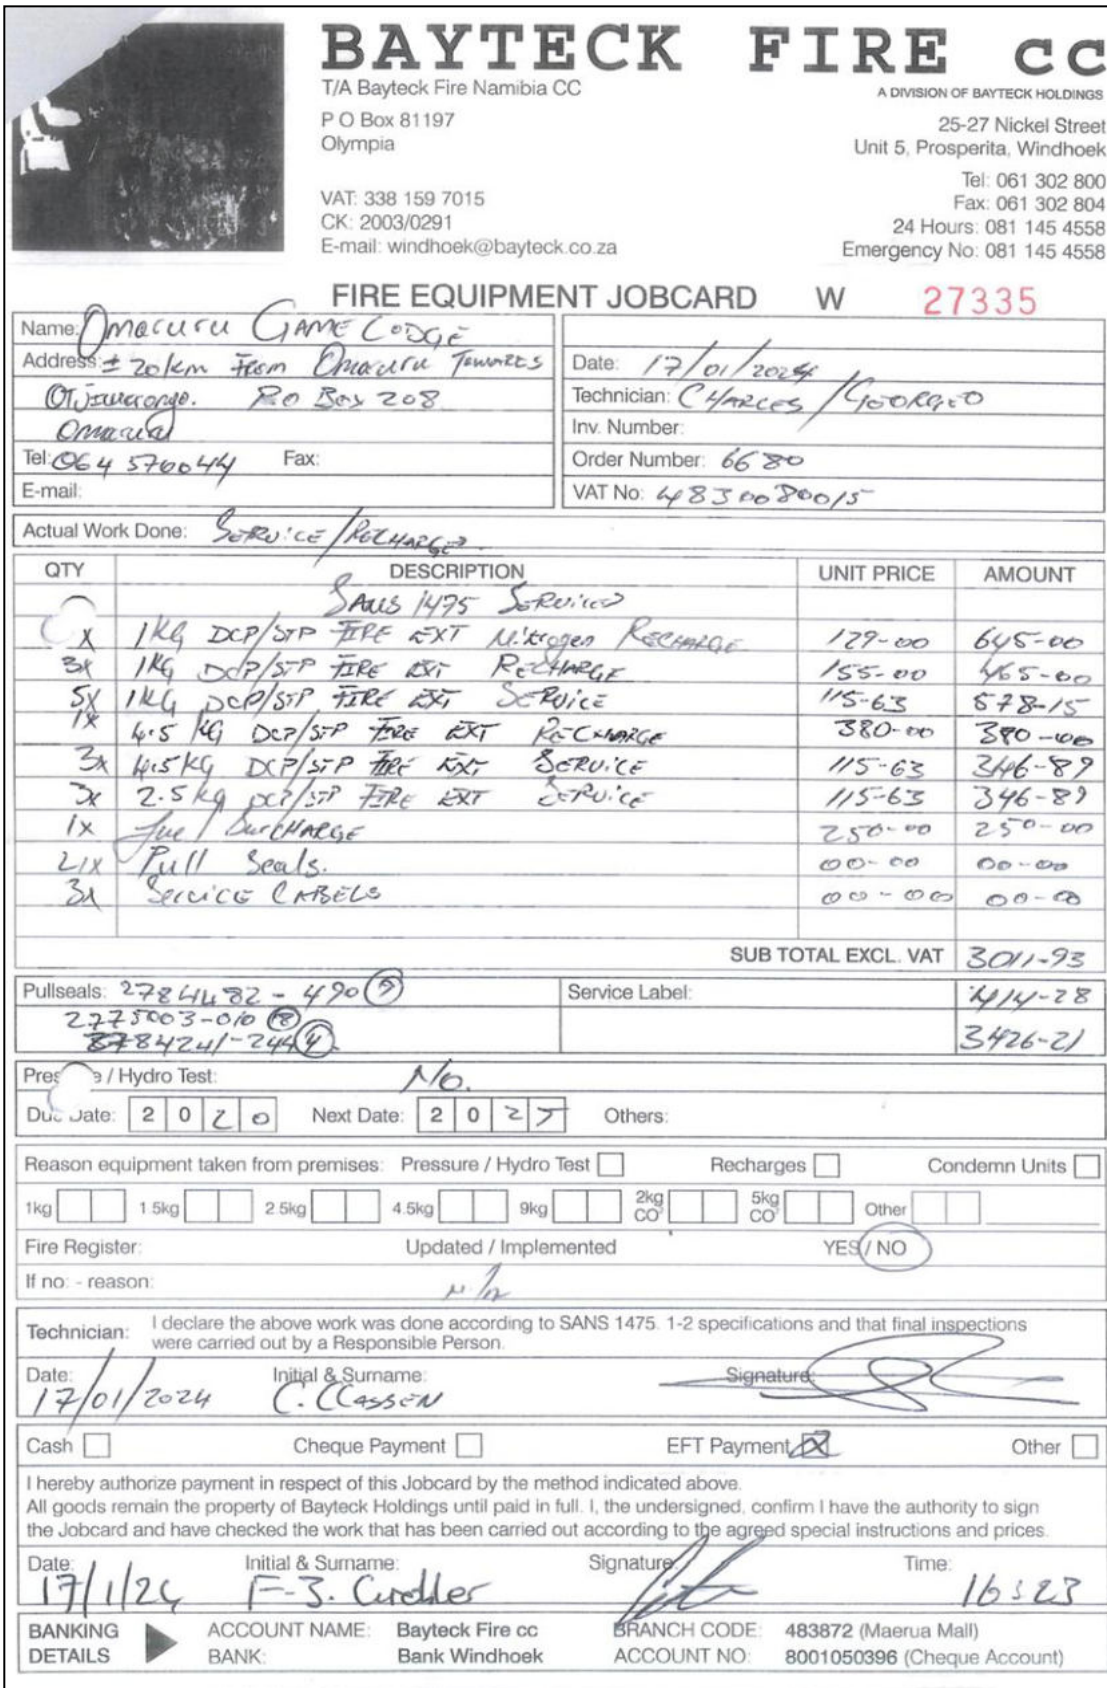 BAYTECK FIRE CC
T/A Bayteck Fire Namibia CC
A DIVISION OF BAYTECK HOLDINGS
P O Box 81197
Olympia
25-27 Nickel Street
Unit 5, Prosperita, Windhoek
VAT: 338 159 7015
CK: 2003/0291
E-mail: windhoek@bayteck.co.za
Tel: 061 302 800
Fax: 061 302 804
24 Hours: 081 145 4558
Emergency No: 081 145 4558
FIRE EQUIPMENT JOBCARD W 27335
Name: Omaruru GAME LODGE
Address: ± 20km From Omaruru Towards
Otjiwarongo. PO Box 208
Omaruru
Tel: 064 570044 Fax:
E-mail:
Date: 17/01/2024
Technician: CHARLES / GEORGEO
Inv. Number:
Order Number: 6680
VAT No: 4830080015
Actual Work Done: SERVICE/RECHARGE
QTY DESCRIPTION UNIT PRICE AMOUNT
SANS 1475 SERVICED
x 1KG DCP/STP FIRE EXT Nitrogen RECHARGE 129-00 645-00
3x 1KG DCP/STP FIRE EXT RECHARGE 155-00 465-00
5x 1KG DCP/STP FIRE EXT SERVICE 115-63 578-15
1x 4.5 KG DCP/STP FIRE EXT RECHARGE 380-00 380-00
3x 4.5KG DCP/STP FIRE EXT SERVICE 115-63 346-89
3x 2.5kg DCP/STP FIRE EXT SERVICE 115-63 346-89
1x Fuel SURCHARGE 250-00 250-00
21x Pull Seals. 00-00 00-00
3x SERVICE LABELS 00-00 00-00
SUB TOTAL EXCL. VAT 3011-93
Pullseals: 2784482 - 490 (9)
2775003-010 (8)
8784241-244 (4)
Service Label:
414-28
3426-21
/ Hydro Test: No.
Due Date: 2020 Next Date: 2025 Others:
Reason equipment taken from premises: Pressure / Hydro Test Recharges Condemn Units
1kg 1.5kg 2.5kg 4.5kg 9kg 2kg CO² 5kg CO² Other
Fire Register: Updated / Implemented YES / NO
If no: - reason: N/A
Technician: I declare the above work was done according to SANS 1475. 1-2 specifications and that final inspections
were carried out by a Responsible Person.
Date: Initial & Surname: Signature:
17/01/2024 C. CLASSEN
Cash Cheque Payment EFT Payment Other
I hereby authorize payment in respect of this Jobcard by the method indicated above.
All goods remain the property of Bayteck Holdings until paid in full. I, the undersigned, confirm I have the authority to sign
the Jobcard and have checked the work that has been carried out according to the agreed special instructions and prices.
Date: Initial & Surname: Signature: Time:
17/1/24 F-J. 16:23
BANKING DETAILS
ACCOUNT NAME: Bayteck Fire cc BRANCH CODE: 483872 (Maerua Mall)
BANK: Bank Windhoek ACCOUNT NO: 8001050396 (Cheque Account)